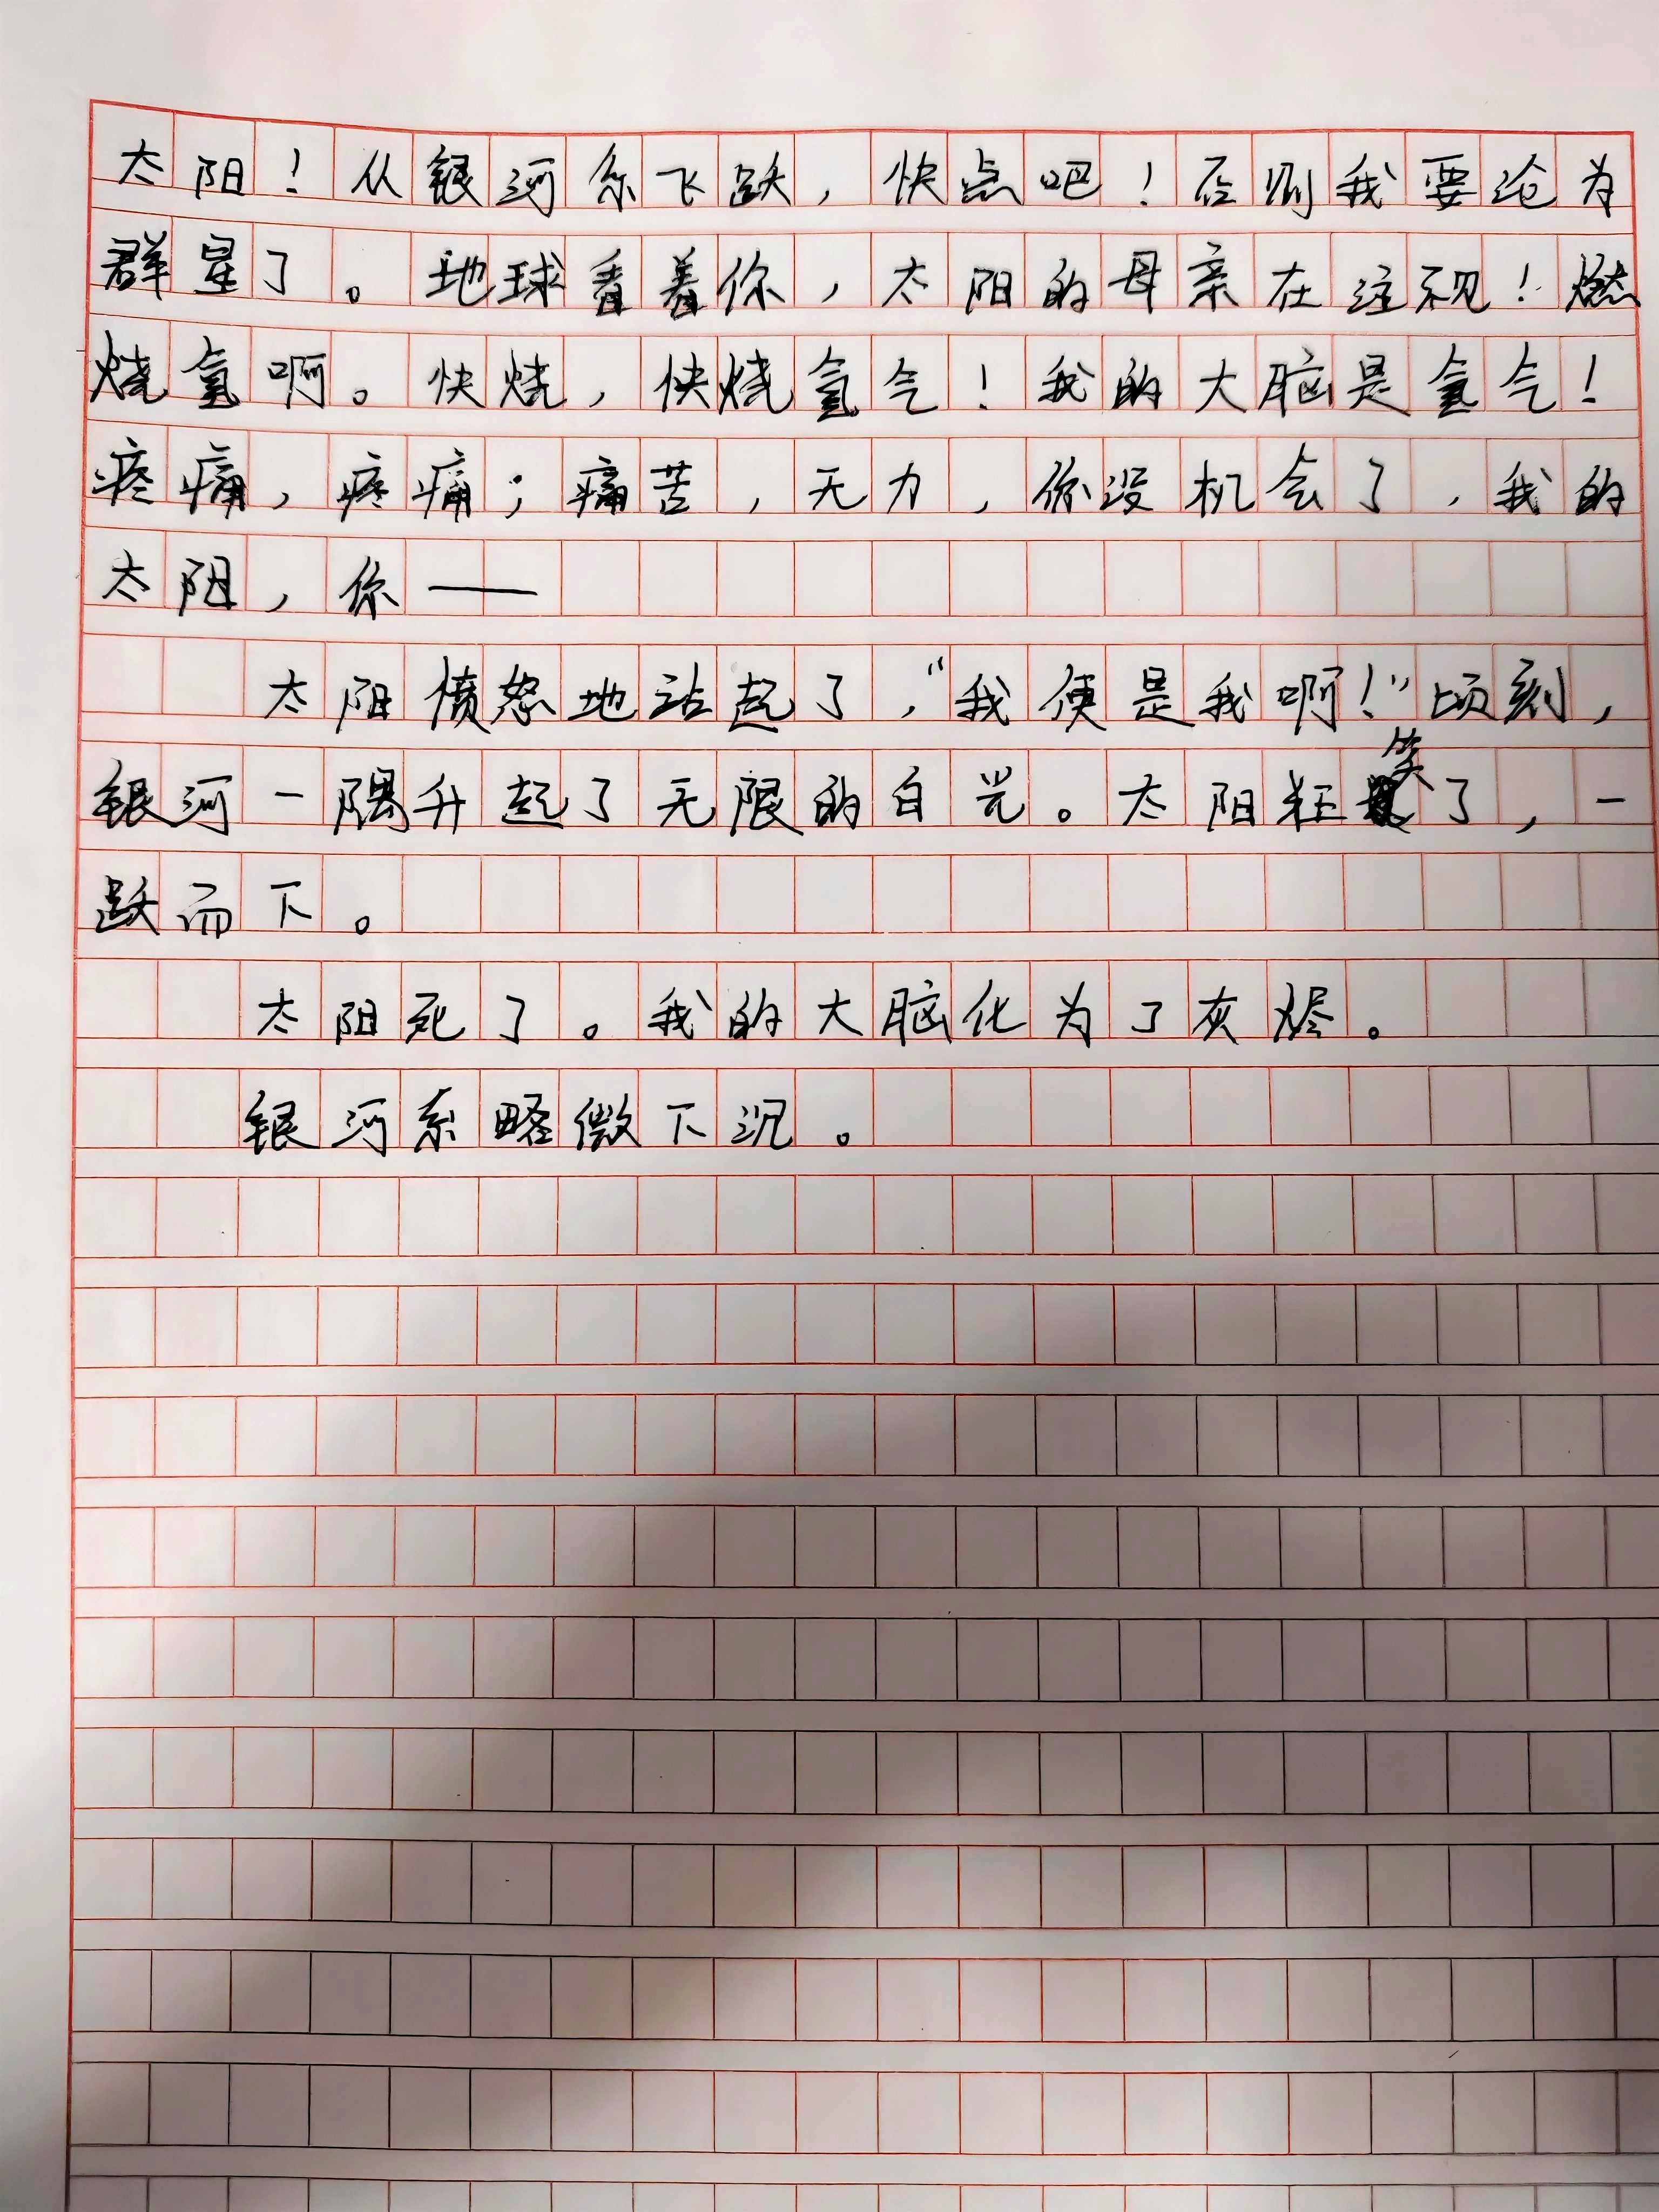 太阳！从银河你飞跃，快点吧！否则我要沦为
群星了。地球看着你，太阳的母亲在注视！燃
烧氢啊。快烧，快烧氢气！我的大脑是氢气！
疼痛，疼痛；痛苦，无力，你没机会了，我的
太阳，你——
太阳愤怒地站起了，“我便是我啊！”顷刻，
银河一隅升起了无限的白光。太阳狂笑了，一
跃而下。
太阳死了。我的大脑化为了灰烬。
银河系略微下沉。